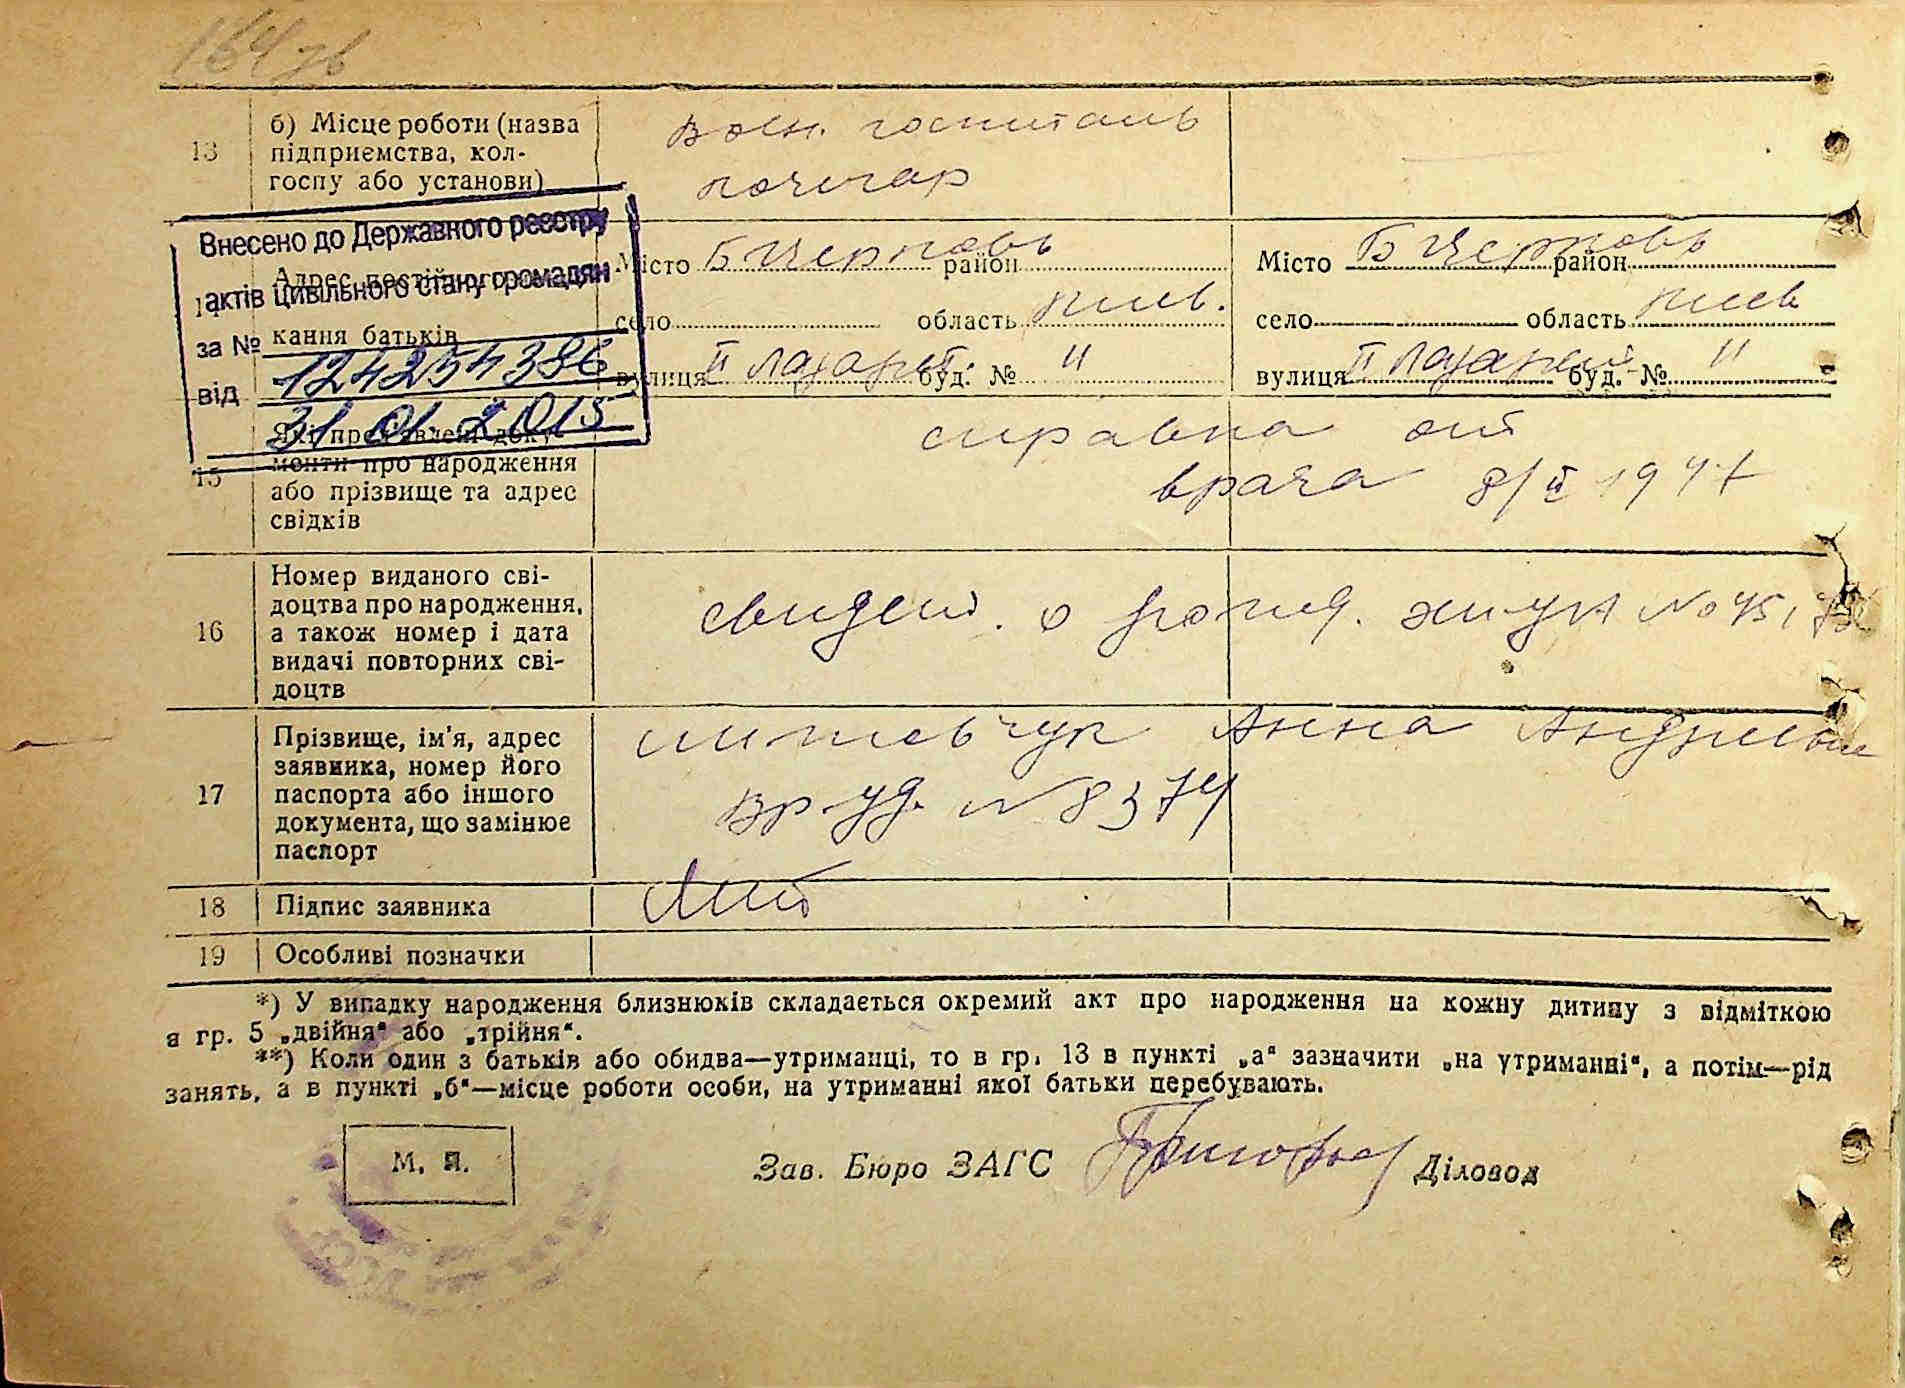 164 зв
13
б) Місце роботи (назва
підприємства, кол-
госпу або установи)
воен. госпиталь
кочегар
Внесено до Державного реєстру
актів цивільного стану громадян
за №
1242254386
від
31.01.2015
кання батьків
Місто Б Церковь район
село область Киев.
вулиця II буд. № 11
Місто Б Церковь район
село область Киев
вулиця II буд. № 11
15
Які пред'явлені доку-
менти про народження
або прізвище та адрес
свідків
справка от
врача 8/II 1947
16
Номер виданого сві-
доцтва про народження,
а також номер і дата
видачі повторних сві-
доцтв
свидет. о рожд. №
17
Прізвище, ім'я, адрес
заявника, номер його
паспорта або іншого
документа, що замінює
паспорт
Анна Андреевна
вр. уд. № 8374
18
Підпис заявника
19
Особливі позначки
*) У випадку народження близнюків складається окремий акт про народження на кожну дитину з відміткою
в гр. 5 „двійня“ або „трійня“.
**) Коли один з батьків або обидва—утриманці, то в гр. 13 в пункті „а“ зазначити „на утриманні“, а потім—рід
занять, а в пункті „б“—місце роботи особи, на утриманні якої батьки перебувають.
М. П.
Зав. Бюро ЗАГС
Діловод